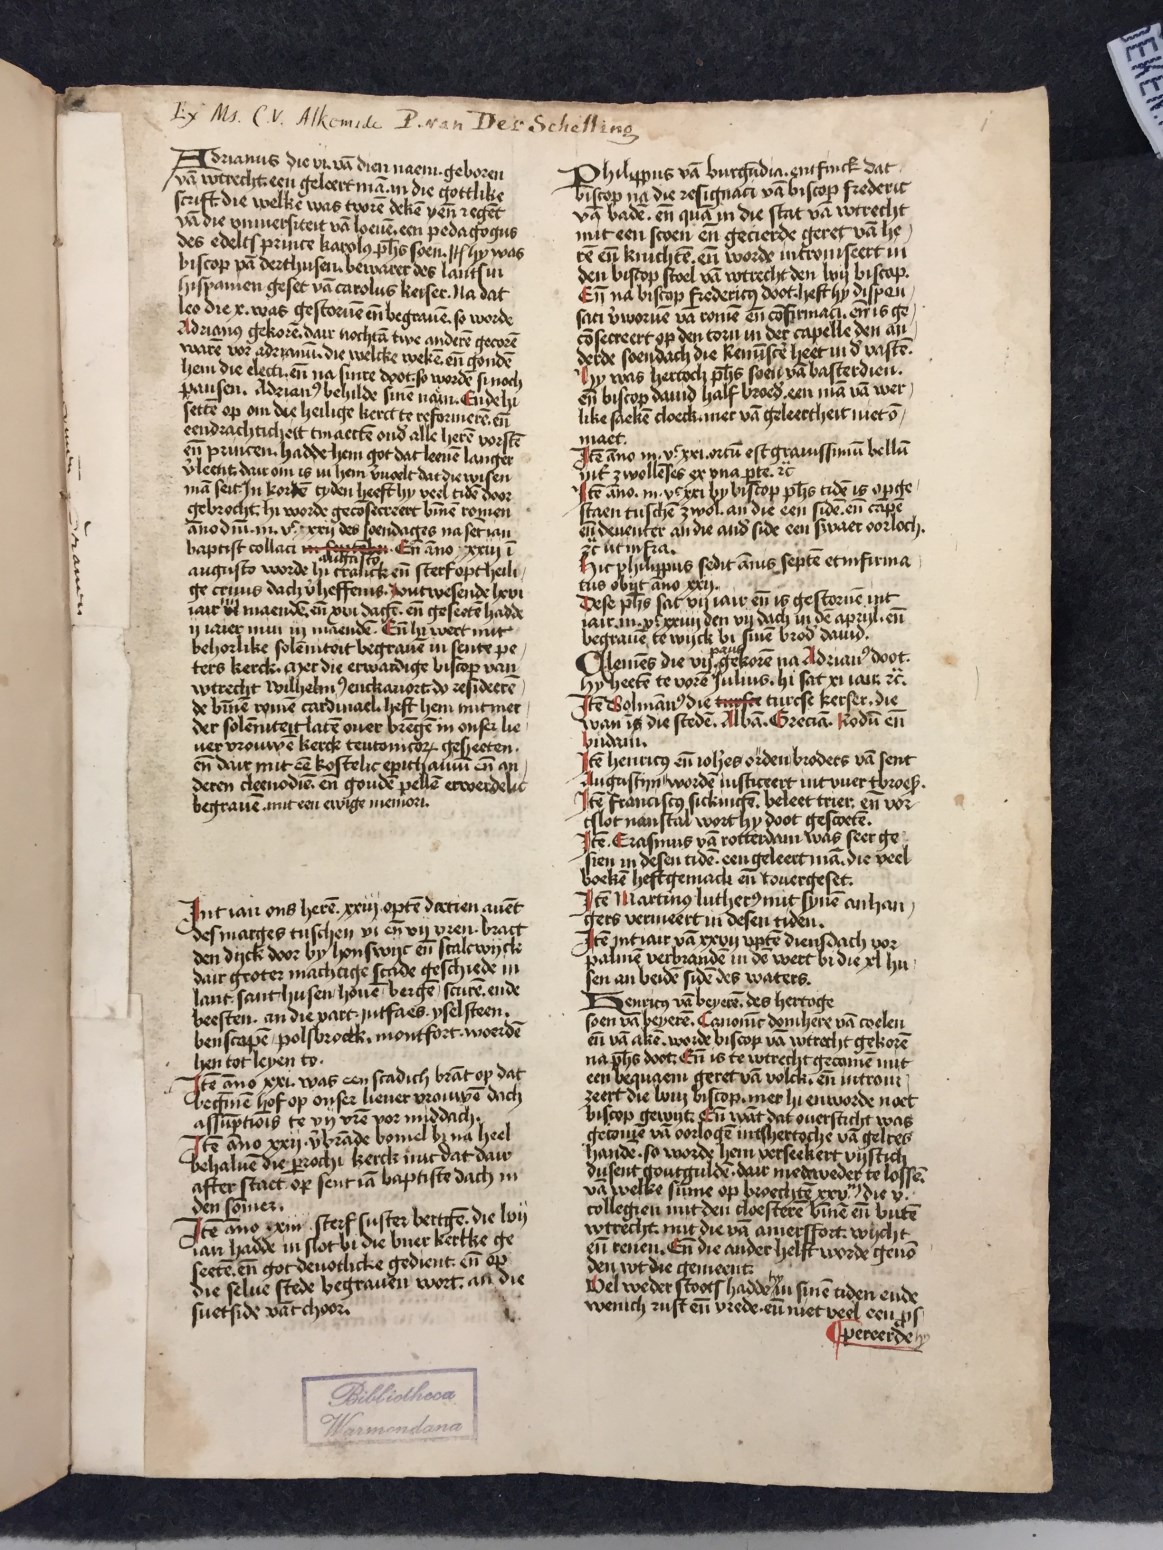 Ex Ms. C.V. Alkemade P. van Der Schelling
Adrianus die vi. vā dien naem. geboren
vā wtrecht. een geleert mā. in die gotlike
scrift die welke was tvorē dekē yen regēt
vā die vniuersiteit vā loeuē. een pedagogus
des edelts prince karolus phs soen. hy was
biscop vā derthusen. bewarer des lants in
hispanien geset vā carolus keiser. Na dat
leo die x. was gestoruē eñ begrauē. so worde
Adrianus gekorē. dair nochtā twe anderē gecorē
warē vor adrianū. die welcke wekē. eñ gondē
hem die electi. eñ na sinre doot. so wordē si noch
pausen. Adrianus behilde sinē nām. Ende hi
settē op om die heilige kerct te reformerē. eñ
eendrachticheit tmaectē ond alle herē vorstē
eñ princen. hadde hem got dat leeuē langer
vleent. dair om is in hem vuoelt dat die wisen
mā seit. In kortē tyden heeft hy veel tidē door
gebrocht. hi worde gecōsecreert binē romen
āno dm̄. m. vᶜ. xxij des soendages na set ian
baptist collaci Eñ āno xxiij ī
augusto
augusto worde hi cranck eñ sterf opt heili
ge cruus dach vheffenis. Jout wesende lxvi
iair vi maendē. eñ xvi dagē. eñ geseetē hadde
ij iaer min iij maendē. Eñ hi wert mit
behorlike solēniteit begrauē in sente pe
ters kerck. Mer die erwardige biscop van
wtrecht wilhelmus enckauort. do resideerē
de binē romē cardinael. heft hem mit mer
der solēniteit latē ouer brēgē in onser lie
uer vrouwē kerck teutonicorum geheeten.
eñ dair mit eē kostelic epithauiū eñ an
deren cleenodiē. eñ gouden pellē erwerdelic
begrauē. mit een ewige memori.
Int iair ons herē. xxiij. optē dertien auēt
des marges tuschen vi eñ vij vren. bract
den dijck door by honswijc eñ scalcwijck
dair groter machtige scade geschiede in
lant. sant husen. houē. bergē. scurē. ende
beesten. an die vaert. jutfaes. yselsteen.
benscapē. polsbroeck. montfort. woerdē
hen tot leyen to.
Itē āno xxi. was een scadich brāt op dat
begynē hof op onser lieuer vrouwē dach
assūptiōis te vij vrē vor middach.
Itē āno xxij. vbrāde bomel bi na heel
behaluē die prochi kerck mit dat dair
after staet op sent iā baptiste dach in
den somer.
Itē āno xxiij sterf suster bertgē. die lvij
iair hadde in slot bi die buer kerke ge
seetē. eñ got deuotlicke gedient. eñ op
die selue stede begrauen wort. an die
suetside vāt choor.
Philippus vā burgūdia. entfinck dat
biscop na die resignaci vā biscop frederic
vā badē. eñ quā in die stat vā wtrecht
mit een scoen eñ gecierde geret vā he
rē eñ knichtē. eñ worde intronizeert in
den biscop stoel vā wtrecht den lvij biscop.
Eñ na biscop fredericus doot. heft hy dispen
saci vworuē vā romē eñ cōfirmaci. eñ is ge
cōsecreert op den torn in der capelle den an
derde soendach die Reminiscē heet in d vastē.
Hy was hertoch phs soen vā basterdien.
eñ biscop dauid half broed. een mā vā wer
like saeken cloeck. mer vā geleertheit niet ō
maet.
Itē āno m. vᶜ. xxi. ortū est grauissimū bellū
int zwollēses ex vna pte. zc
Itē āno. m. vᶜ xxi by biscop phs tidē is opge
staen tuschen zwol. an die een sidē. eñ cāpē
eñ deuenter an die and side een swaer oorloch.
zc vt infra.
Hic philippus sedit ānis septē et infirma
tus obijt āno xxij.
Dese phs sat vij iair eñ is gestoruē int
iair. m. vᶜ xxiiij den vij dach in de april. eñ
begrauē te wijck bi sinē brod dauid.
paus
Clemēs die vij. gekorē na Adrianus doot.
hy heetē te vorē Julius. hi sat xi iair. zc.
Itē Solmānus die turcse keiser. die
wan īs die stedē. Albā. Grecia. Rodū eñ
budam.
Itē henricus eñ iohēs ordēn broders vā sent
Augustijn wordē iusticeert mit vuer tbroesel.
Itē franciscus sickingē. beleet trier. eñ vor
tslot nanstal wort hy doot gescoetē.
Itē. Erasmus vā rotterdam was seer ge
sien in desen tidē. een geleert mā. die veel
boekē heft gemackt eñ touergeset.
Itē Martinus lutherus mit synē anhan
gers vermeert in desen tiden.
Itē int iair vā xxvij optē diensdach vor
palmē verbrandē in de wert bi die xl hu
sen an beidē sidē des waters.
Henricus vā beyerē. des hertoge
soen vā beyerē. Canonic domhere vā coelen
eñ vā akē. worde biscop vā wtrecht gekorē
na phs doot. Eñ is te wtrecht gecomē mit
een bequaem geret vā volck. eñ introni
zeert die lviij biscop. mer hi en worde noet
biscop gewijt. Eñ wāt dat ouersticht was
gecomē vā oorlogē int shertoche vā gelres
hande. so worde hem verseekert vijftich
dusent goutguldē. dair mede weder te lossē.
vā welke sūme op brochtē xxvᵐ die v.
collegien mit den cloesterē binē eñ butē
wtrecht. mit die vā amersfort. wijcht
eñ renen. Eñ die ander helft worde genō
den wt die gemeent.
hy
Vel weder stoots hadde in sinē tiden ende
wenich rust eñ vrede. eñ niet veel een ps
pereerde hy
Bibliotheca
Warmondana